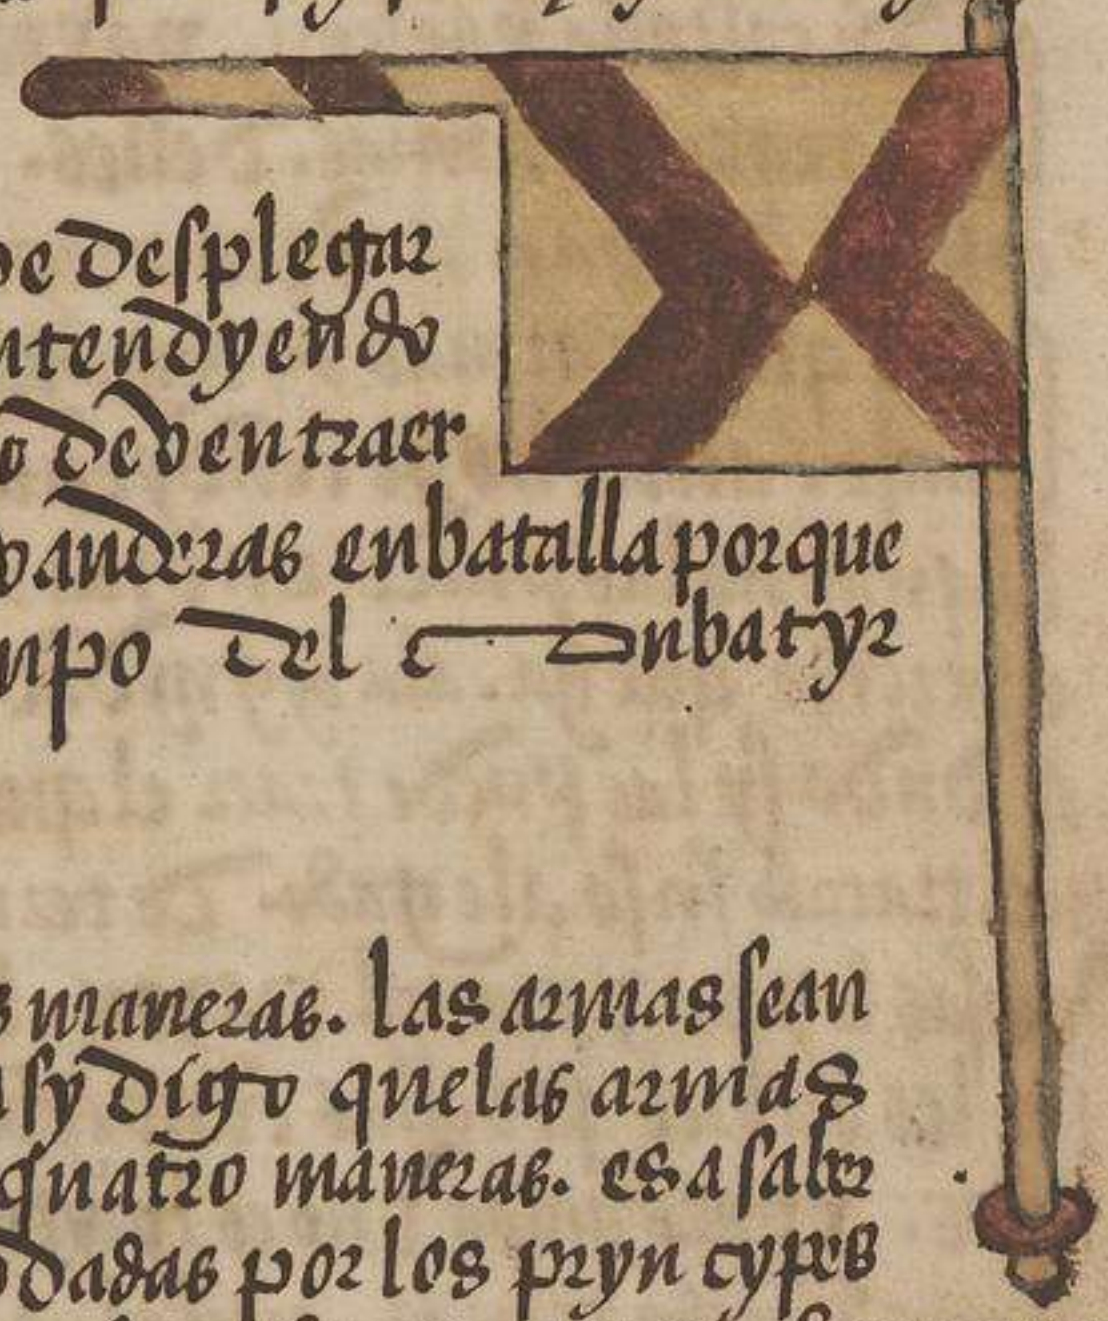 desplegar
ntendyendo
o deven traer
vanderas enbatalla porque
npo del conbatyr
s maneras. las armas sean
sy digo quelas armas
quatro maneras. es a saber
dadas por los pryncypes